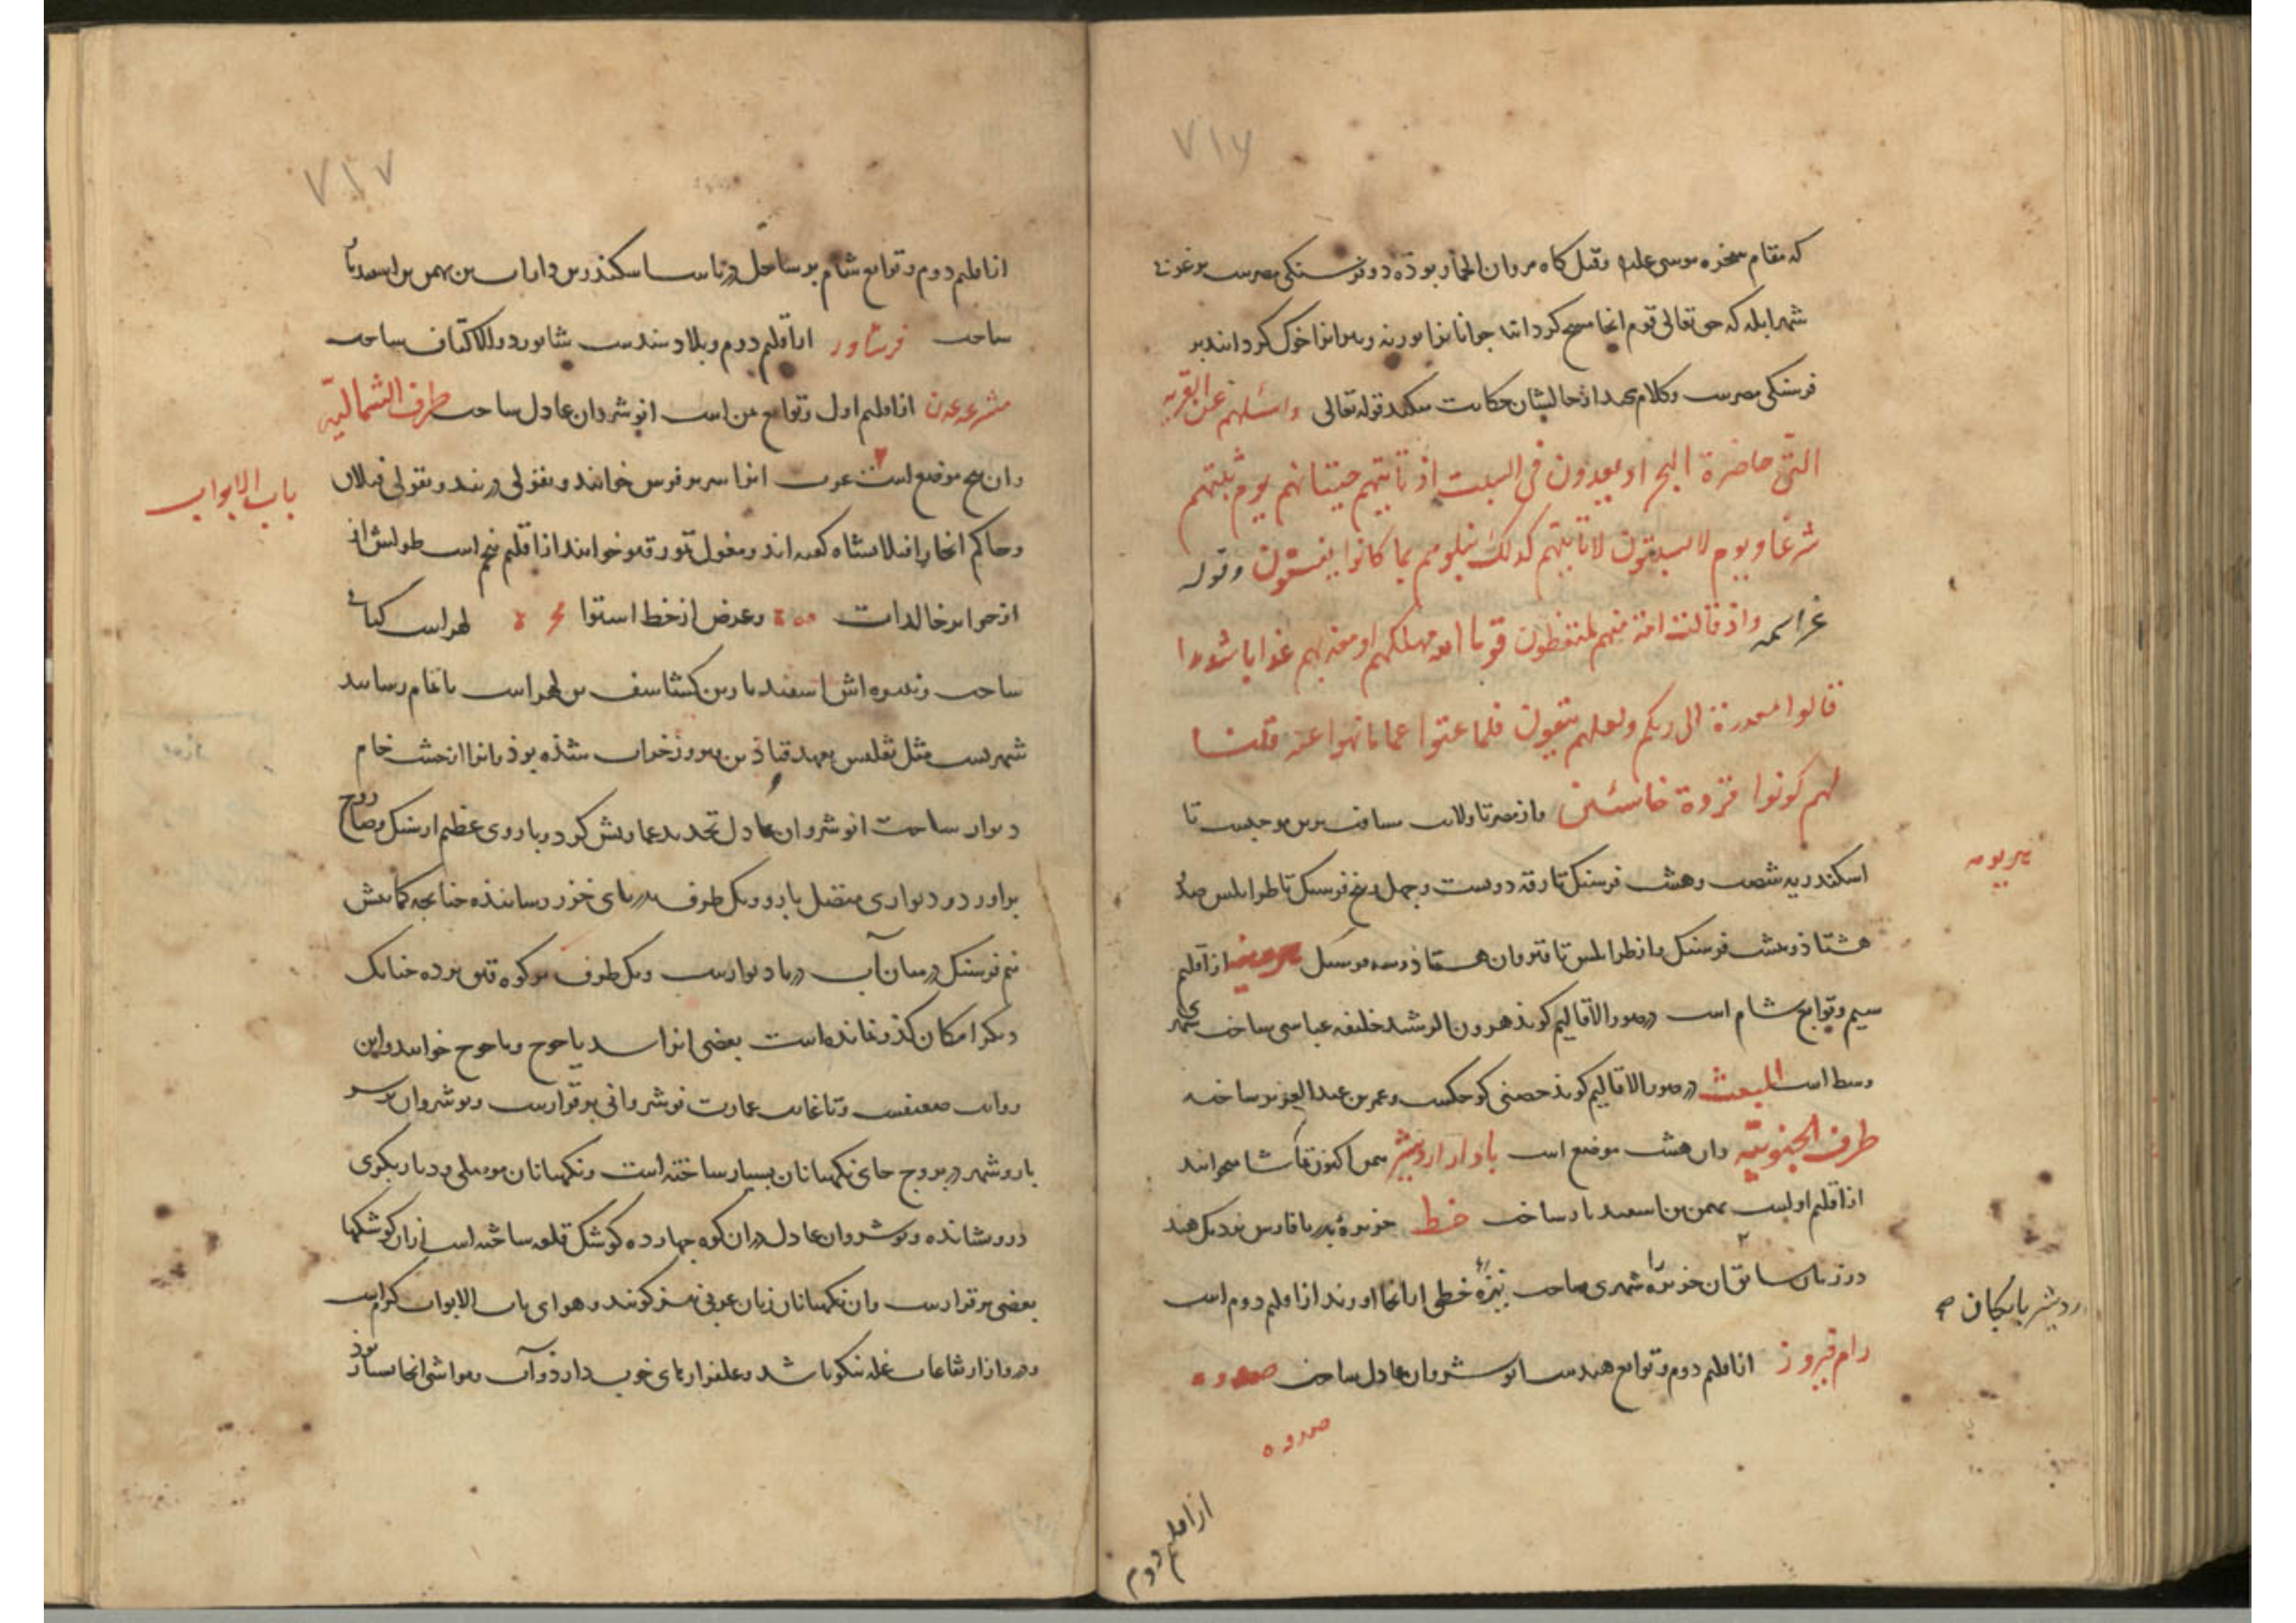 ٧١٦
که مقام سخره موسی علیه وقتل کاه مروان الحمار بوده دو فرسنکی مصرست
شهر ابله که حق تعالی قوم انجا مسخ کردانید جوانانرا بوزنه و پیرانرا خوک کردانید بر
فرسنکی مصرست وکلام مجید از حالشان حکایت میکند قوله تعالی واسئلهم عن القریه
التی حاضرة البحر اذ یعدون فی السبت اذ تاتیهم حیتانهم یوم سبتهم
شرعا ویوم لا یسبتون لا تاتیهم کذلک نبلوهم بما کانوا یفسقون وقوله
عز اسمه واذ قالت امة منهم لم تعظون قوما الله مهلکهم او معذبهم عذابا شدیدا
قالوا معذرة الی ربکم ولعلهم یتقون فلما عتوا عما نهوا عنه قلنا
لهم کونوا قردة خاسئین واز مصر تا ولایت مسافت برین موجبست تا
اسکندریه شصت وهشت فرسنک تا رقه دویست وچهل وپنج فرسنک تا طرابلس صد
هشتاذ وهشت فرسنک واز طرابلس تا قیروان هشتاذ وسه فرسنک از اقلیم
سیم وتوابع شام است در صور الاقالیم کوید هرون الرشید خلیفه عباسی ساخت
وسط است در صور الاقالیم کوید حصنی کوچکست وعمر بن عبد العزیز ساخت
طرف الجنوبیه وان هشت موضع است باذار اردشیر
از اقلیم اولست بهمن بن اسفندیار ساخت خط جزیرهٔ بدریا فارس نزدیک هند
در زمان سابق ان جزیره را شهری ساخت نیزهٔ خطی از انجا اورند از اقلیم دوم است
رام فیروز از اقلیم دوم وتوابع هندست انوشروان عادل ساخت
از اقلیم دوم
اردشیر بابکان صح
٧١٧
از اقلیم دوم وتوابع شام بر ساحل دریاست اسکندر بن داراب بن بهمن بن اسفندیار
ساخت فرشاور از اقلیم دوم وبلاد سندست شابور ذو الاکتاف ساخت
مشرعه عدن از اقلیم اول وتوابع یمن است انوشروان عادل ساخت طرف الشمالیة
وان پنج موضع است عرب انرا سریر فرس خوانند وبقولی دربند وبقولی فیلان
باب الابواب
وحاکم انجا را فیلانشاه کفته اند ومغول تمور قپو خوانند از اقلیم پنجم است طولش از
از جزایر خالدات وعرض از خط استوا لهراسب کیانی
ساخت ونبیره اش اسفندیار بن کشتاسف بن لهراسب باتمام رسانید
شهریست مثل تفلیس بعهد قباذ بن فیروز خراب شده بوذ وانرا از خشت خام
دیوار ساخت انوشروان عادل تجدید عمارتش کرد وباروی عظیم از سنک وصاروج
براورد ودیواری متصل بارو ویک طرف بدریای خزر رسانیده چنانچه کمابیش
نیم فرسنک در میان آب دریا دیوارست ویک طرف بر کوه قبق برده چنانک
دیکر امکان کذر نمانده است بعضی انرا سد یاجوج وماجوج خوانند واین
روایت ضعیفست وتا غایت عمارت نوشروانی برقرارست ونوشروان بر سر
بارو شهر در بروج جای نکهبانان بسیار ساخته است ونکهبانان موصلی ودیاربکری
درو نشانده ونوشروان عادل دران کوه چهارده کوشک قلعه ساخته است ازان کوشکها
بعضی برقرارست وان نکهبانان زبان عربی نیز کویند وهوای باب الابواب کرمست
ودرو از ارتفاعات غله نیکو باشد وعلفزارهای خوب دارد وآب ومواشی انجا بسیار بود